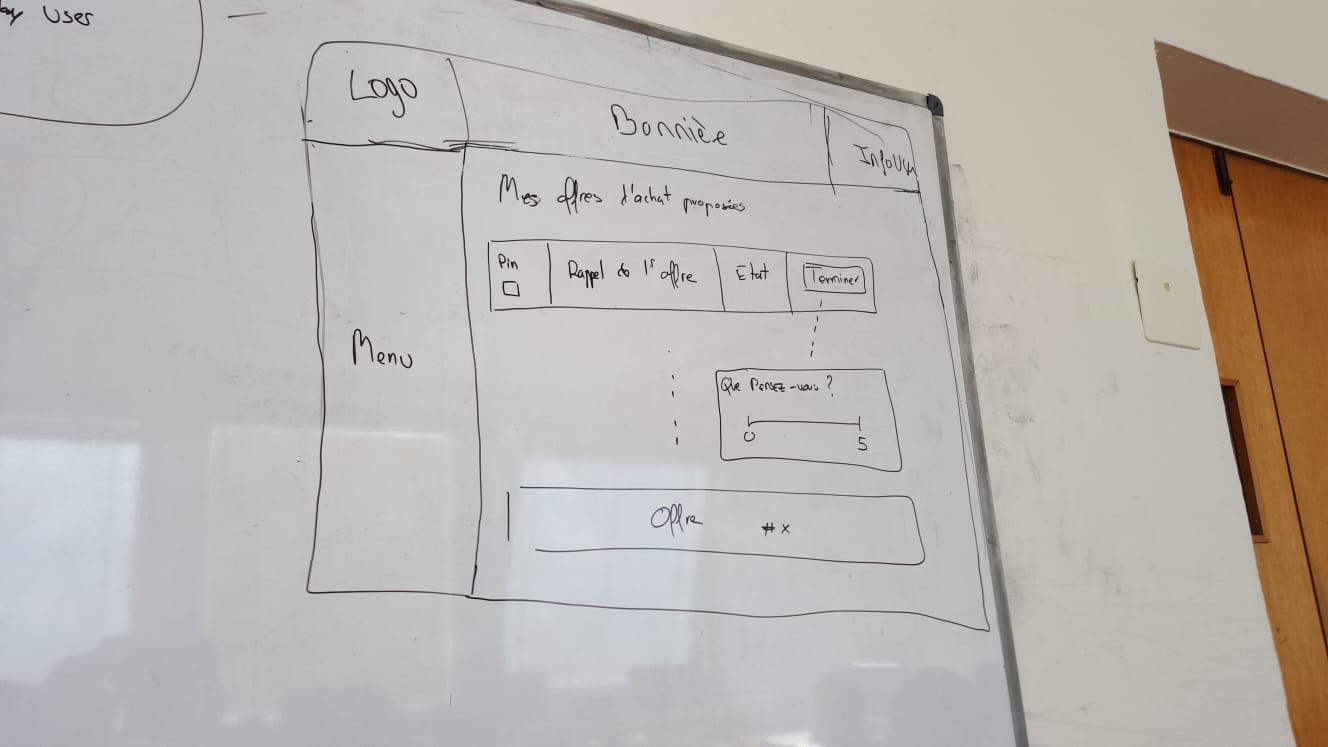 by User
Logo
Bannière
Mes offres d'achat proposées
Pin
Rappel de l'offre
Etat
Terminer
Menu
Que Pensez-vous ?
0
5
Offre #x